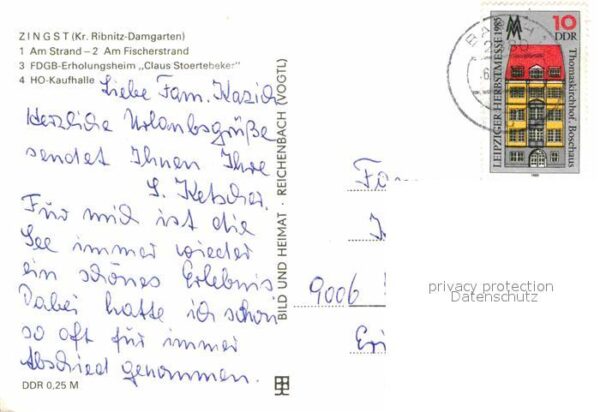 ZINGST (Kr. Ribnitz-Damgarten)
1 Am Strand – 2 Am Fischerstrand
3 FDGB-Erholungsheim „Claus Stoertebeker“
4 HO-Kaufhalle
Liebe Fam. Kazich
Herzliche Urlaubsgrüße
sendet Ihnen Ihre
S. Ketscher.
Für mich ist die
See immer wieder
ein schönes Erlebnis
Dabei hatte ich schon
so oft für immer
Abschied genommen.
DDR 0,25 M
BILD UND HEIMAT · REICHENBACH (VOGTL)
LEIPZIGER HERBSTMESSE 1985
10
DDR
Thomaskirchhof. Boschaus
1985
Fa
9006
privacy protection
Datenschutz